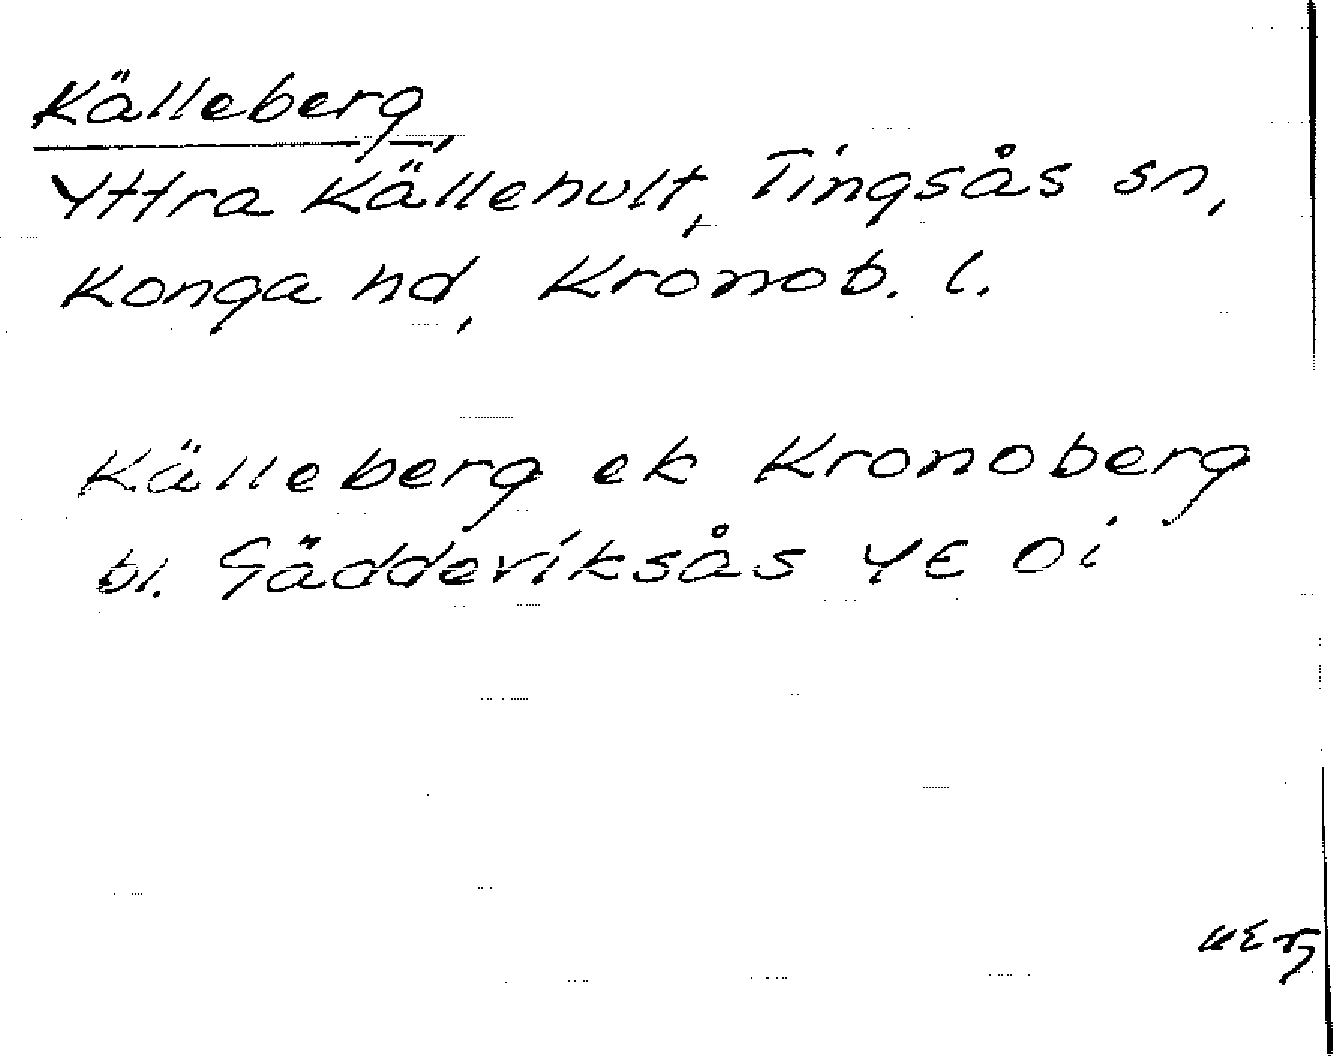 Källeberg,
Yttra Källehult, Tingsås sn,
Konga hd, Kronob. l.
Källeberg ek Kronoberg
bl. Gäddeviksås 4E 0i